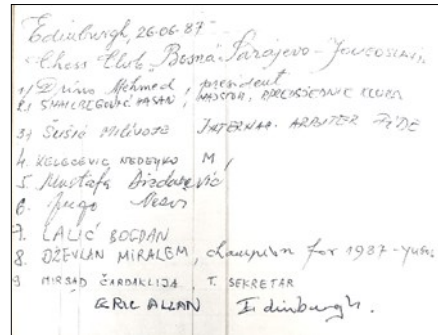 Edinburgh, 26-06-87
Chess Club "Bosna" Sarajevo - Jugoslavi
1) Drino Mehmed, president
2) HASAN, PREDSJEDNIK KLUBA
3) Šušić Milivoje INTERNAA. ARBITER FIDE
4. KELEČEVIĆ NEDELJKO M,
5. Mustafa Dizdarević
6.
7. LALIĆ BOGDAN
8. DŽEVLAN MIRALEM, champion for 1987-yug.
9 MIRSAD ČARDAKLIJA, T. SEKRETAR
ERIC ALLAN Edinburgh.